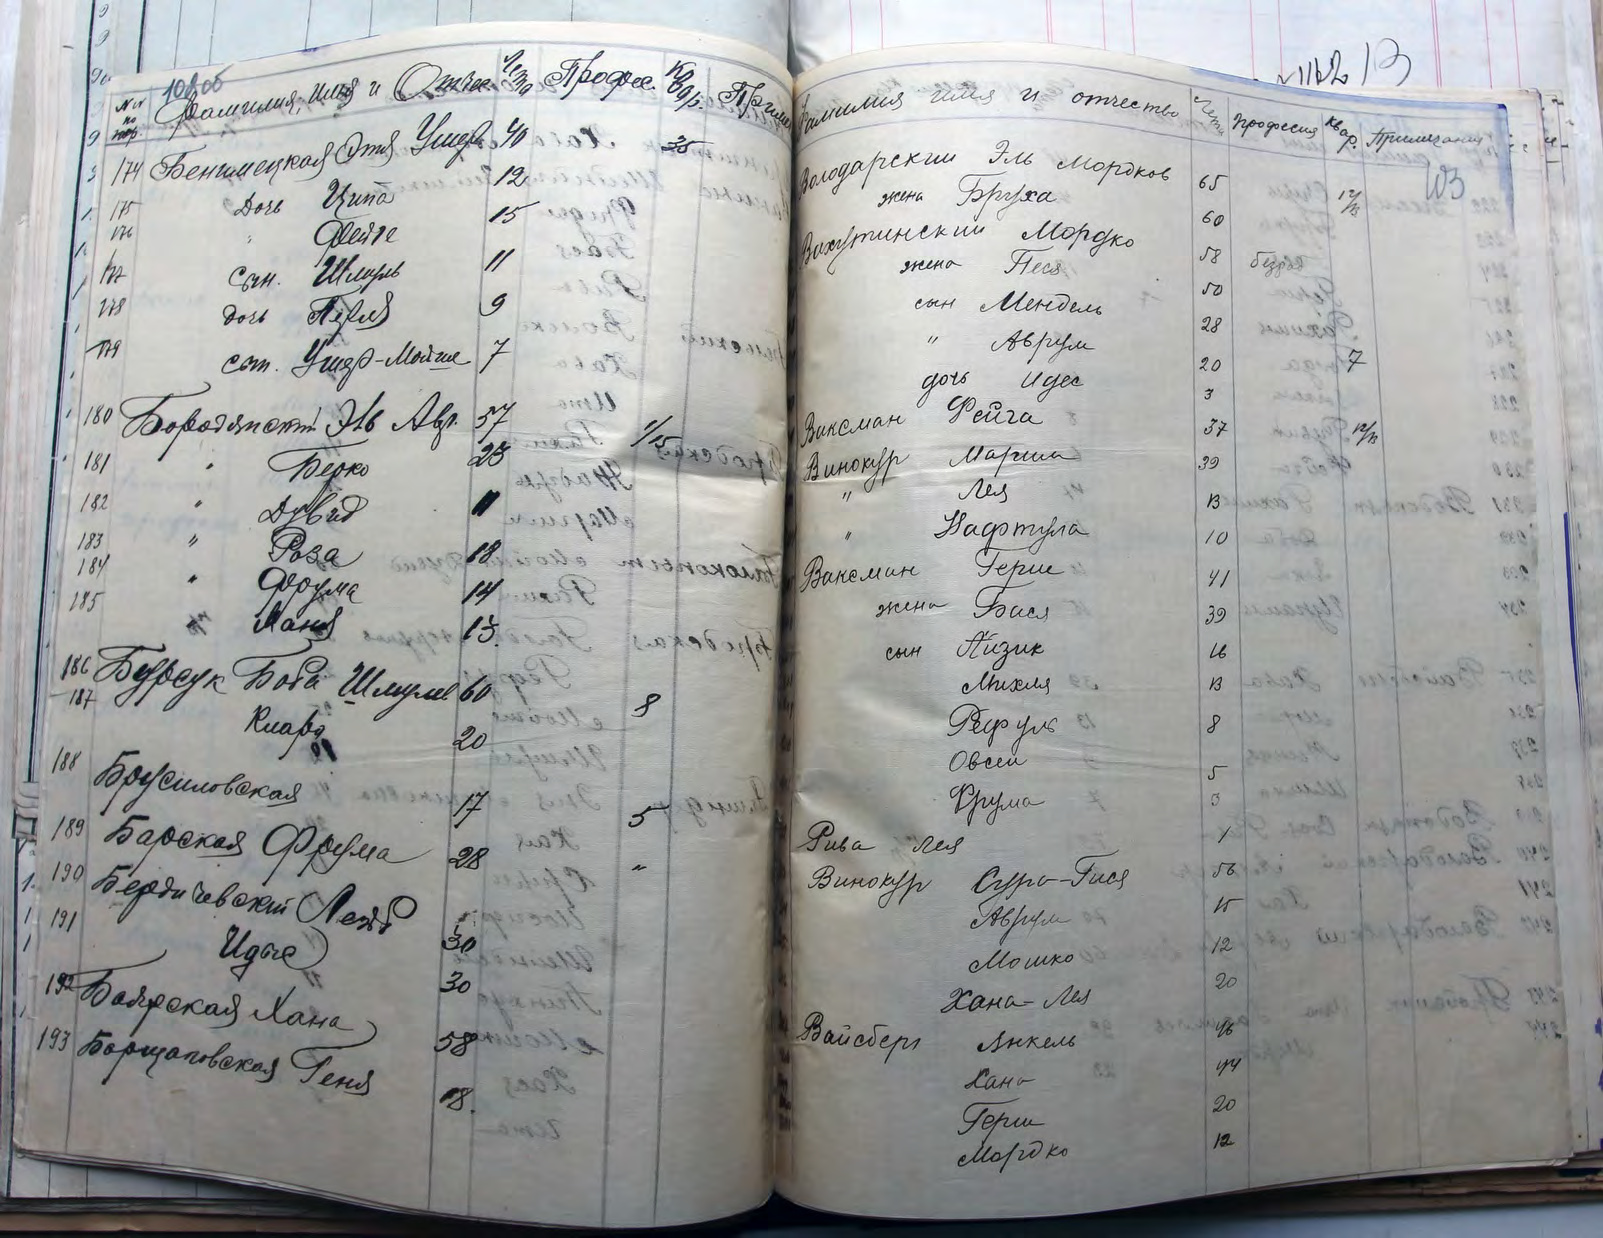 108об
№№ по пор. Фамилия, имя и Отчес. Лета Професс. Квар. Примеч
174 Бенимецкая Этя Ушер. 40 35
175 Дочь Ципа 12
176 " Фейге 15
177 сын. Шмуль 11
178 дочь Перля 9
179 сын. Ушер-Мойше 7
180 Бородянский Эль Авр. 57 1/15
181 " Берко 23
182 " Дувид 11
183 " Роза 18
184 " Фрума 14
185 Маня 13
186 Бурсук Боба Шмулев 60 8
187 Клара 20
188 Брусиловская 17 5
189 Барская Фрума 28 "
190 Бердичевский Лейб 30
191 Идис 30
192 Боярская Хана 58
193 Борщаговская Геня 18.
Фамилия имя и отчество Лета Профессия Квар. Примечания
103
Володарский Эль Мордков 65 12/13
жена Бруха 60
Вахутинский Мордко 58
жена Песя 50
сын Мендель 28
" Аврум 20 7
дочь Идес 3
Ваксман Фейга 37 12/13
Винокур Мариля 39
" Лея 13
" Нафтула 10
Ваксман Герш 41
жена Бася 39
сын Айзик 16
Михля 13
Рефуль 8
Овсей 5
Фрума 3
Рива Лея 1
Винокур Сура-Гися 56
Аврум 15
Мошко 12
Хана-Лея 20
Вайсберг Янкель 46
Хана 44
Герш 20
Мордко 12